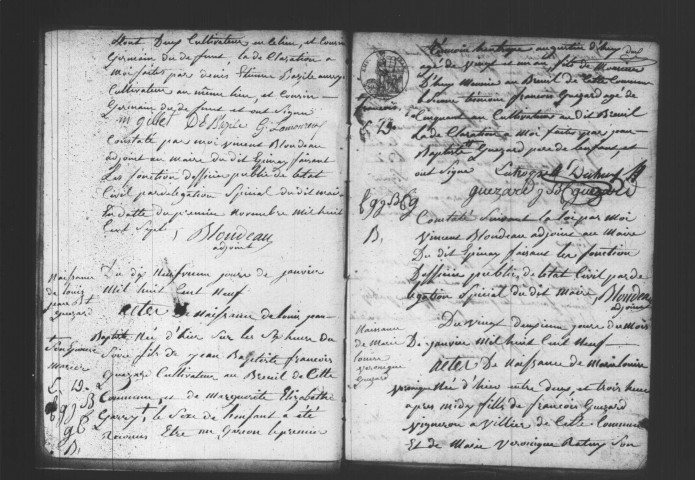 tous deux Cultivateur en ce lieu, et Cousin
Germain du defunt, la de Claration à
Moi faites par denis Etienne Bazile
Cultivateur au même lieu, et Cousin
Germain du defunt et ont Signé
m gillet D E Bazile G. Lamoureux
Constaté par moi vincent Blondeau
adjoint au Maire du dit Epinay faisant
Les fonction dofficier public de letat
Civil par delegation Spécial du dit Maire
La datte du premier Novembre Mil huit
Cent Sept,
Blondeau
adjoint
Naissance
de louis
jean Bte
Guezard
Du dix Neufvieme joure de janvier
Mil huit Cent Neuf
Acter de Naissance de louis jean
Baptiste Née d'hier Sur les Six heure du
Soire fils de jean Baptiste francois
Guezard Cultivateur au Breuil de Cette
Commune et de Marguerite Elizabethe
Garry le Sexe de lenfant a été
Reconus Etre un Garcon le premier
agé de vingt et un an fils de Monsieur
D'huy Meunier au Breuil de Cette Commune
Le Second témoin francois Guezard agé de
Cinquant an Cultivateur au dit Breuil
La de Claration à Moi faites par jean
Baptiste Guezard pere de lenfant, et
ont Signé
guezard
Constaté Suivant la loi par Moi
Vincent Blondeau adjoint au Maire
Du dit Epinay faisant les fonction
Dofficier public, de letat Civil par de
legation Spécial du dit Maire, Blondeau
adjoint
Naissance
de Marie
louise
veronique
Guezard
Du vingt deuxieme joure du Mois
De janvier Mil huit Cent Neuf
Acter De Naissance de Marie louise
veronique Née d'hier entre deux et trois heure
apres midy fille de francois Guezard
vigneron a villier de Cette Commune
Et de Marie Veronique Son